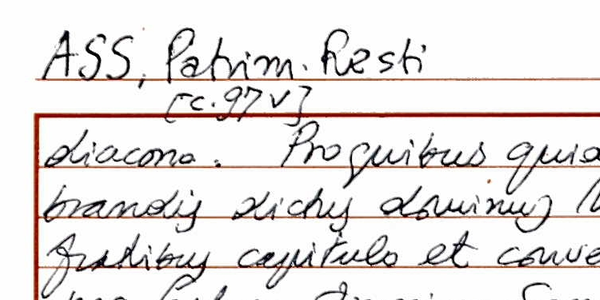 ASS, Patrim. Resti
[c. 97 v]
diacono. Pro quibus quid
brandis dictus dominus
fratribus capitulo et conve